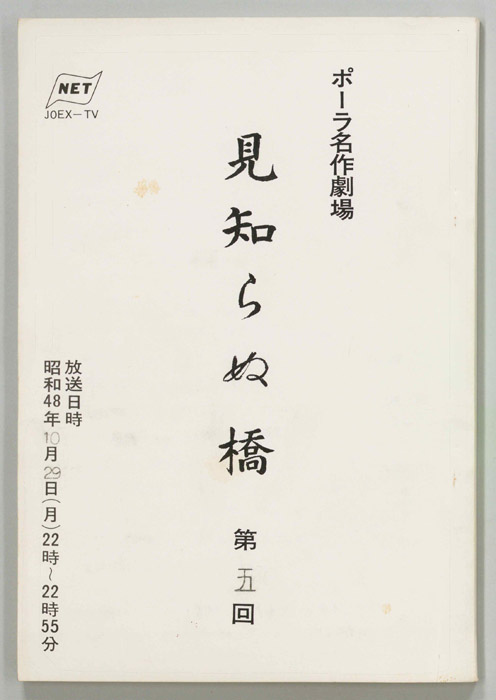 ポーラ名作劇場
見知らぬ橋 第五回
NET
JOEX－TV
放送日時
昭和48年10月29日(月)22時～22時55分